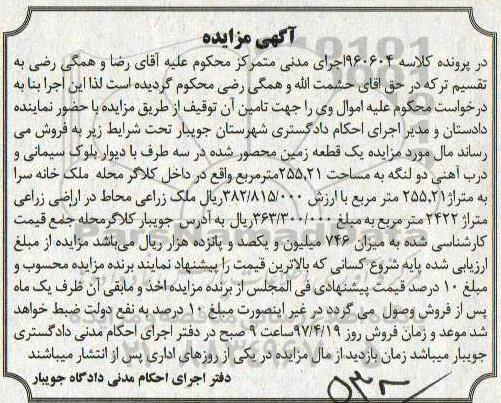 آگهی مزایده
در پرونده کلاسه ۹۶۰۶۰۴اجرای مدنی متمرکز محکوم علیه آقای رضا و همگی رضی به
تقسیم ترکه در حق اقای حشمت الله و همگی رضی محکوم گردیده است لذا این اجرا بنا به
درخواست محکوم علیه اموال وی را جهت تامین آن توقیف از طریق مزایده با حضور نماینده
دادستان و مدیر اجرای احکام دادگستری شهرستان جویبار تحت شرایط زیر به فروش می
رساند مال مورد مزایده یک قطعه زمین محصور شده در سه طرف با دیوار بلوک سیمانی و
درب آهنی دو لنگه به مساحت ۲۵۵,۲۱مترمربع واقع در داخل کلاگر محله ملک خانه سرا
به متراژ ۲۵۵,۲۱متر مربع با ارزش ۳۸۲/۸۱۵/۰۰۰ریال ملک زراعی محاط در اراضی زراعی
متراژ ۲۴۲۲ متر مربع به مبلغ ۳۶۳/۳۰۰/۰۰۰ریال به آدرس جویبار کلاگرمحله جمع قیمت
کارشناسی شده به میزان ۷۴۶ میلیون و یکصد و پانزده هزار ریال می‌باشد مزایده از مبلغ
ارزیابی شده پایه شروع کسانی که بالاترین قیمت را پیشنهاد نمایند برنده مزایده محسوب و
مبلغ ۱۰ درصد قیمت پیشنهادی فی المجلس از برنده مزایده اخذ و مابقی آن ظرف یک ماه
پس از فروش وصول می گردد در غیر اینصورت مبلغ ۱۰ درصد به نفع دولت ضبط خواهد
شد موعد و زمان فروش روز ۹۷/۴/۱۹ساعت ۹ صبح در دفتر اجرای احکام مدنی دادگستری
جویبار میباشد زمان بازدید از مال مزایده در یکی از روزهای اداری پس از انتشار میباشند
دفتر اجرای احکام مدنی دادگاه جویبار